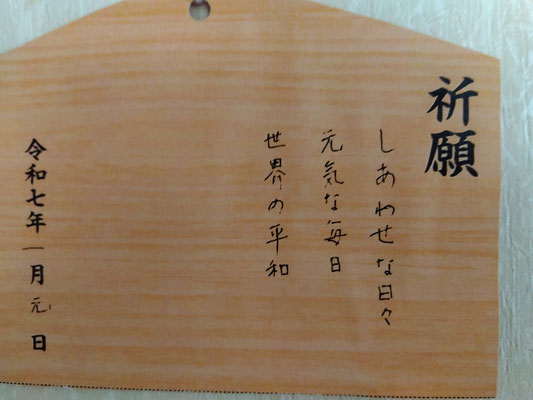 祈願
しあわせな日々
元気な毎日
世界の平和
令和七年一月元日